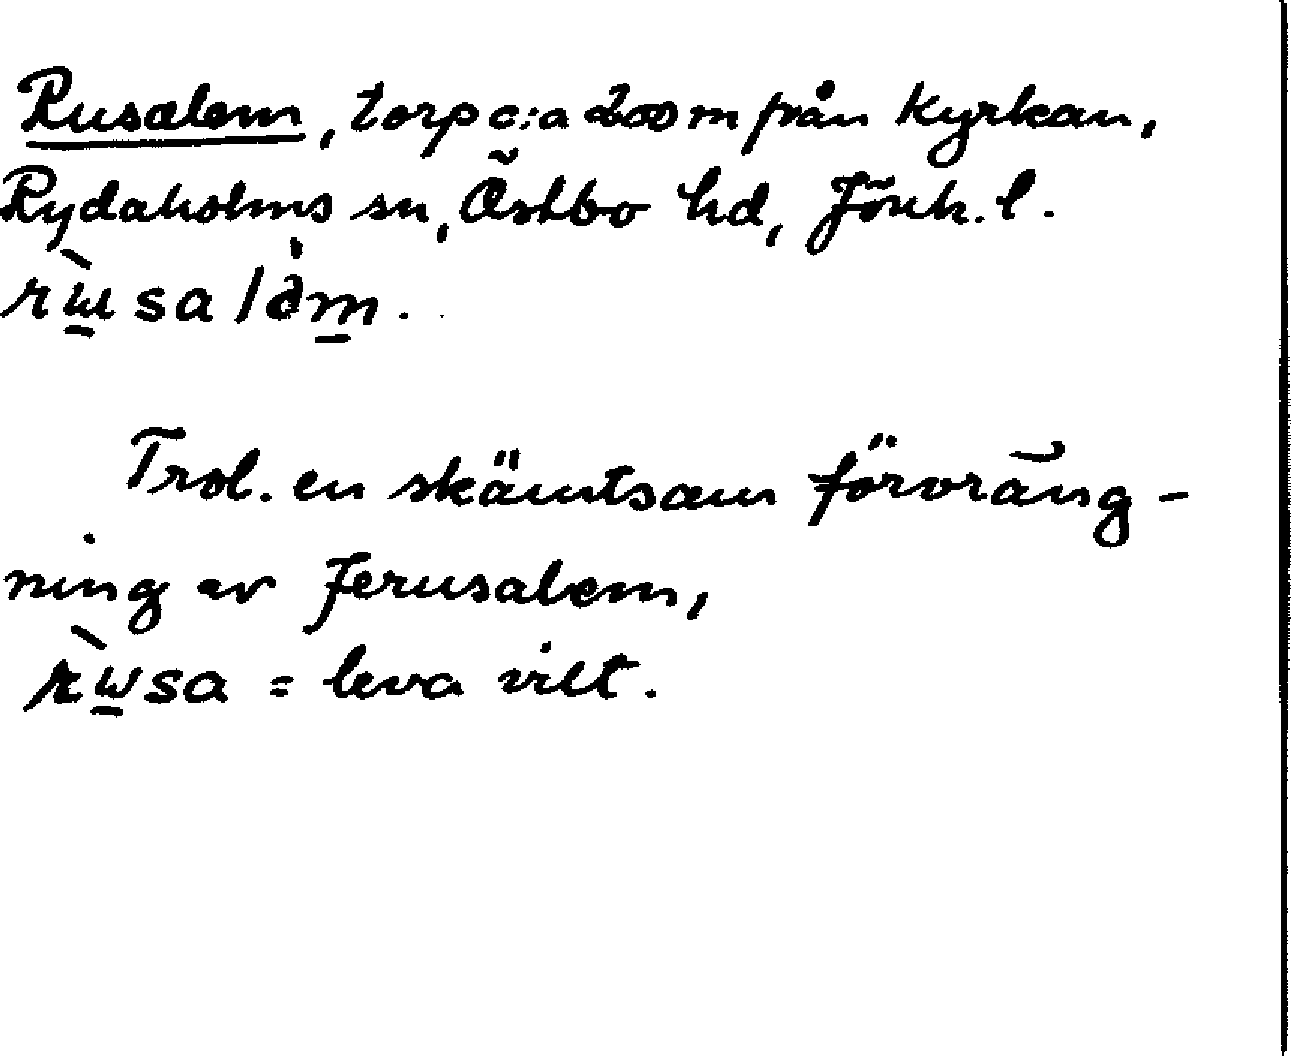 Rusalem, torp c:a 200 m från kyrkan,
Rydaholms sn, Östbo hd, Jönk. l.
rɯ̀salə̀m.
Trol. en skämtsam förvräng-
ning av Jerusalem,
rɯ̀sa = leva vilt.